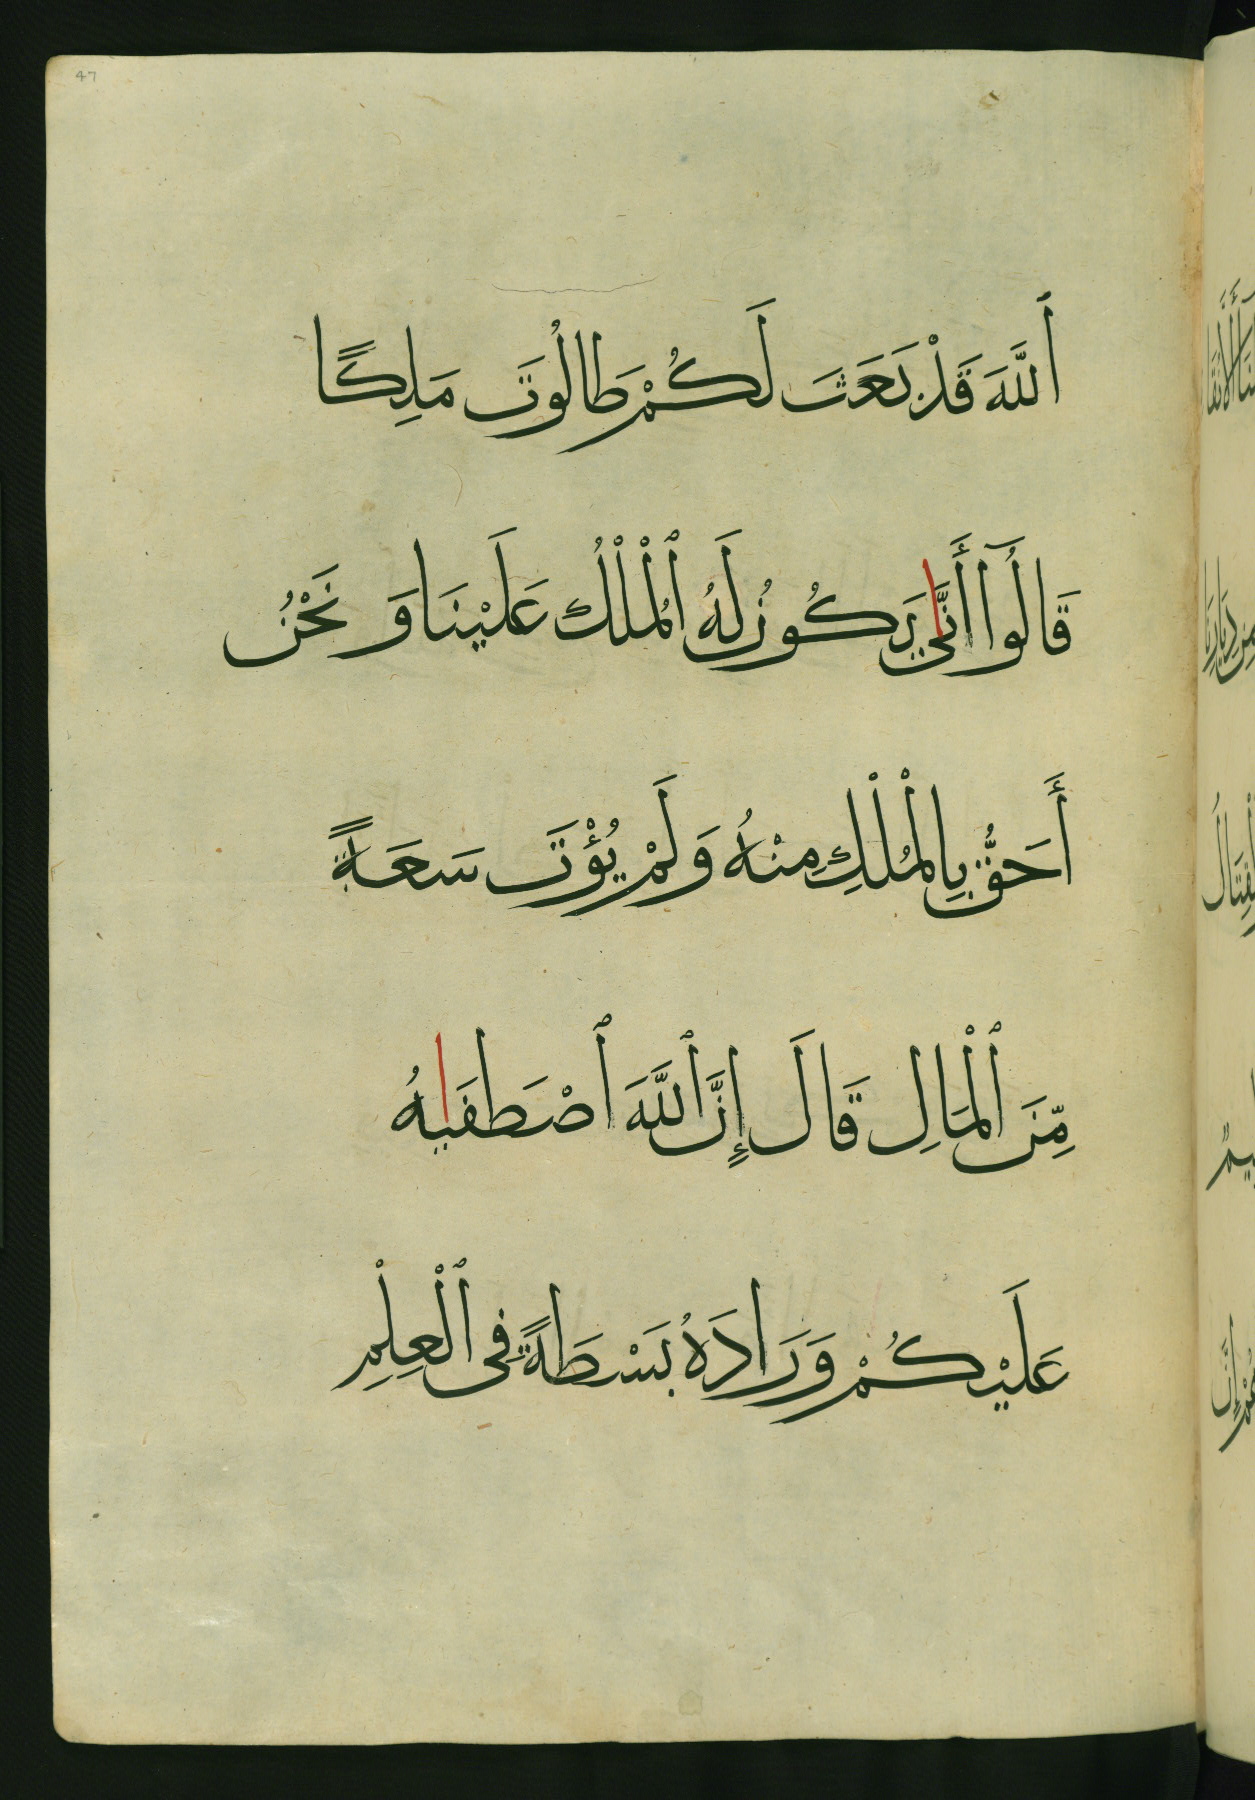 47
ٱللَّهَ قَدْ بَعَثَ لَكُمْ طَالُوتَ مَلِكًا
قَالُوٓا۟ أَنَّىٰ يَكُونُ لَهُ ٱلْمُلْكُ عَلَيْنَا وَنَحْنُ
أَحَقُّ بِالْمُلْكِ مِنْهُ وَلَمْ يُؤْتَ سَعَةً
مِّنَ ٱلْمَالِ قَالَ إِنَّ ٱللَّهَ ٱصْطَفَىٰهُ
عَلَيْكُمْ وَزَادَهُ بَسْطَةً فِى ٱلْعِلْمِ